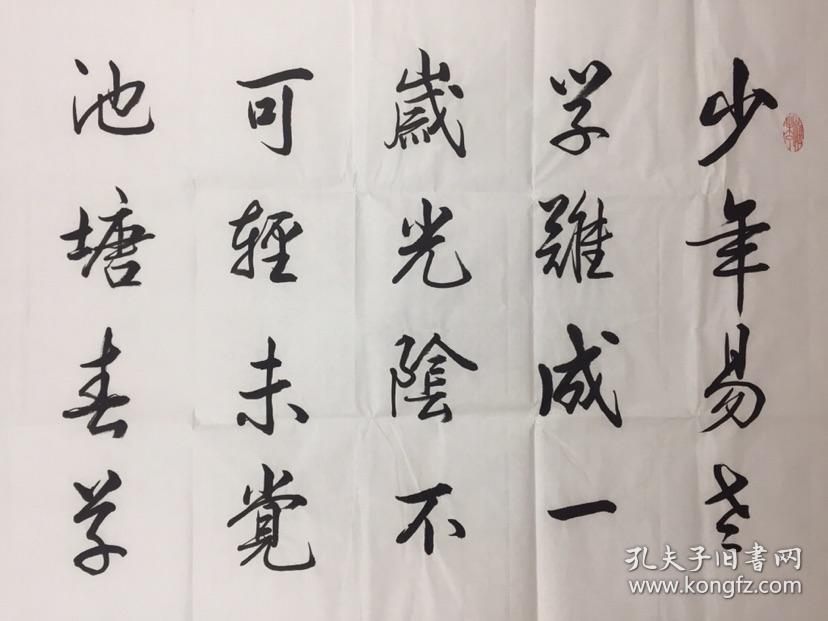 少年易老
学難成一
歲光陰不
可輕未覚
池塘春草
孔夫子旧書网
www.kongfz.com